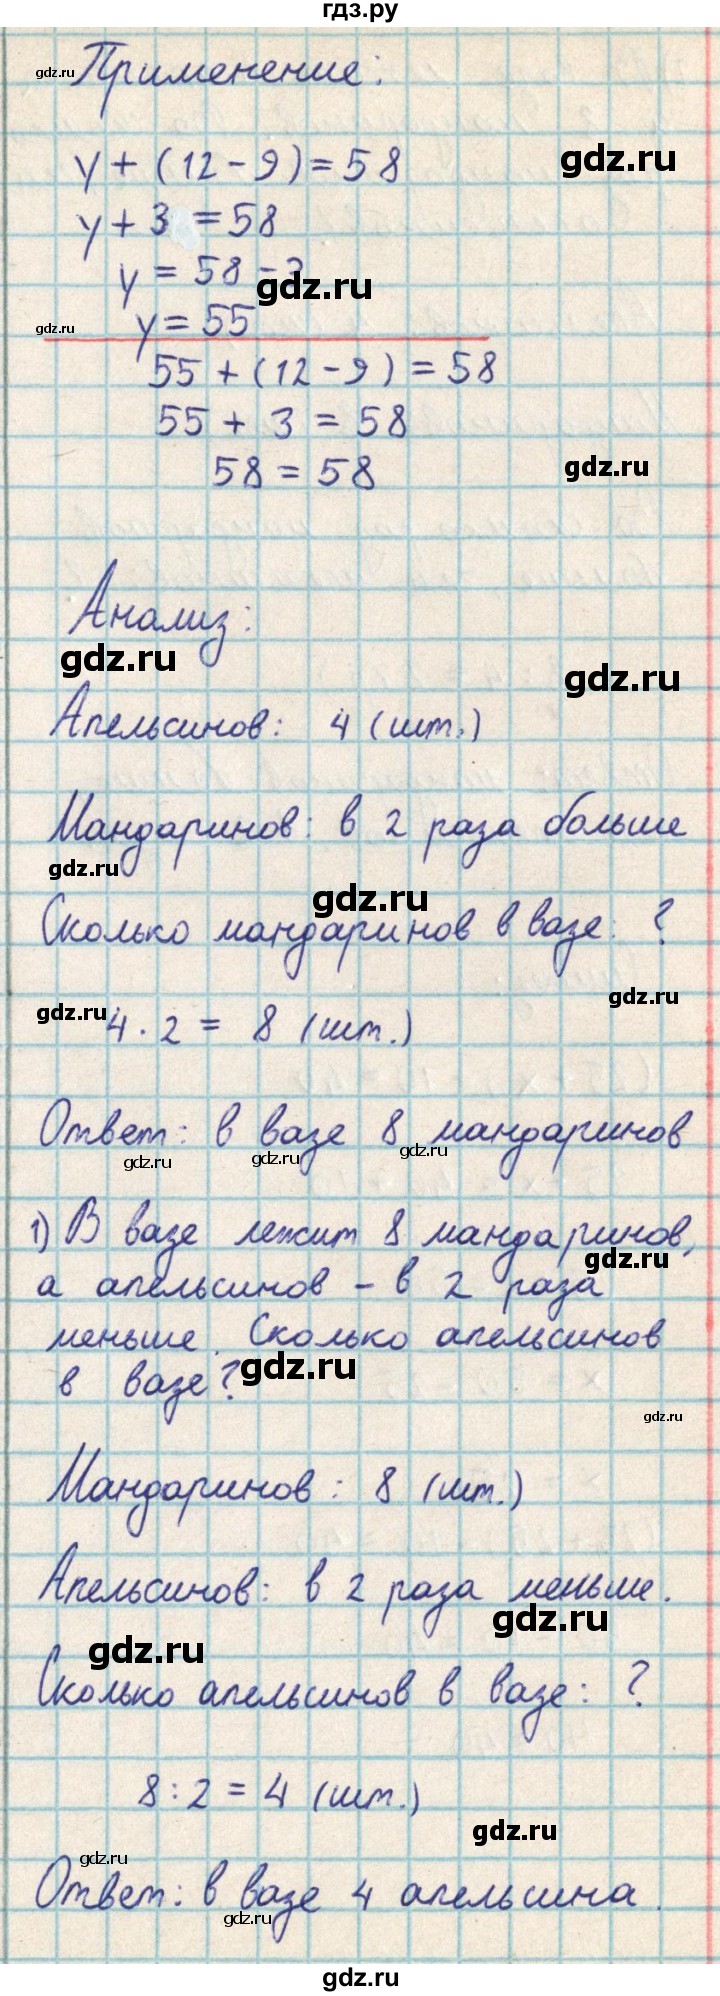 гдз.ру
gdz.ru
Применение:
y + (12 - 9) = 58
gdz.ru
y + 3 = 58
y = 58 - 3
gdz.ru
gdz.ru
y = 55
55 + (12 - 9) = 58
55 + 3 = 58
58 = 58
gdz.ru
Анализ:
gdz.ru
gdz.ru
Апельсинов: 4 (шт.)
Мандаринов: в 2 раза больше
gdz.ru
gdz.ru
Сколько мандаринов в вазе: ?
gdz.ru
gdz.ru
4 · 2 = 8 (шт.)
Ответ: в вазе 8 мандаринов
gdz.ru
gdz.ru
gdz.ru
1) В вазе лежит 8 мандаринов,
gdz.ru
а апельсинов - в 2 раза
меньше. Сколько апельсинов
gdz.ru
в вазе?
gdz.ru
Мандаринов: 8 (шт.)
Апельсинов: в 2 раза меньше.
gdz.ru
gdz.ru
Сколько апельсинов в вазе: ?
8 : 2 = 4 (шт.)
gdz.ru
gdz.ru
Ответ: в вазе 4 апельсина.
gdz.ru
gdz.ru